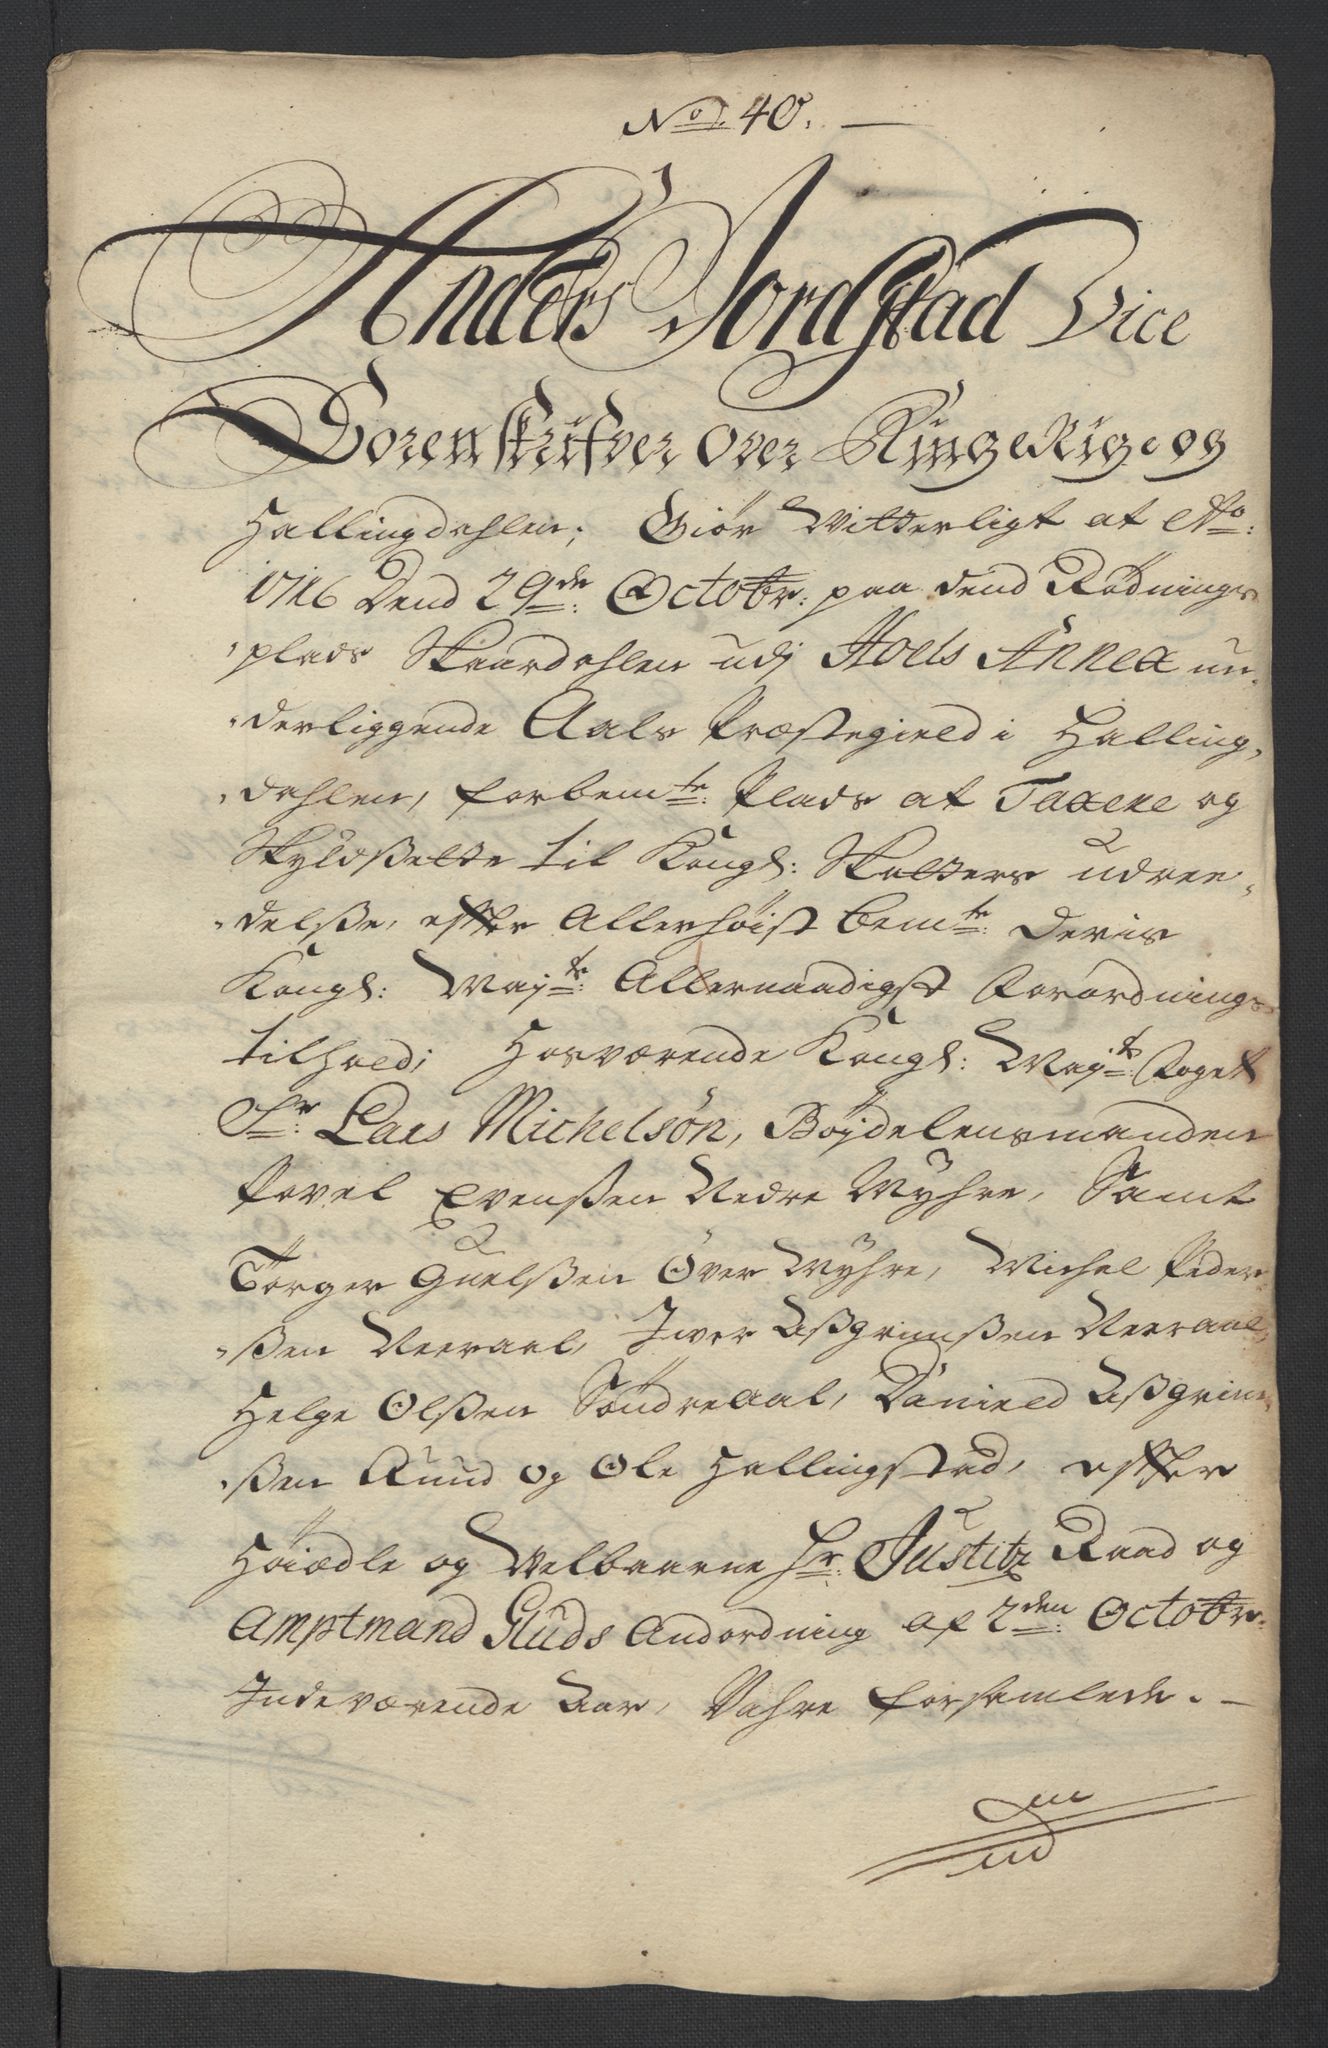 No. 40.
Anders Jordstad Vice
Sorenskrifver over RingeRige og
Hallingdahlen; Giör Witterligt at Ao:
1716 Dend 29de: Octobr: paa dend Rødnings
plads Skurdahlen udj Hoels Annex un-
derliggende Aals Præstegield i Halling-
dahlen, forbemte: Plads at Taxere og
Skyldsette til Kongl: Skatters udree-
delsse, effter Allerhøist bemte: Deris
Kongl: Mayts: Allernaadigst Forordnings
tilhold; Hosværende Kongl: Mayts: Foget
Sr: Lars Michelsön, Böjdelensmanden
Povel Evenssen Nedre Myhre, Samt
Törger Guelssen Över Myhre, Michel Peder-
ssen Neeraal, Iver Assgrimssen Neeraal,
Helge Olssen Søndreaal, Danield Assgrim-
ssen Ruud og Ole Hallingstad, effter
Höiædle og Velbaarne Hr: Justitz Raad og
Amptmand Gluds Andordning af 2den: Octobr:
Indeværende Aar, Vahre forsamlede. —